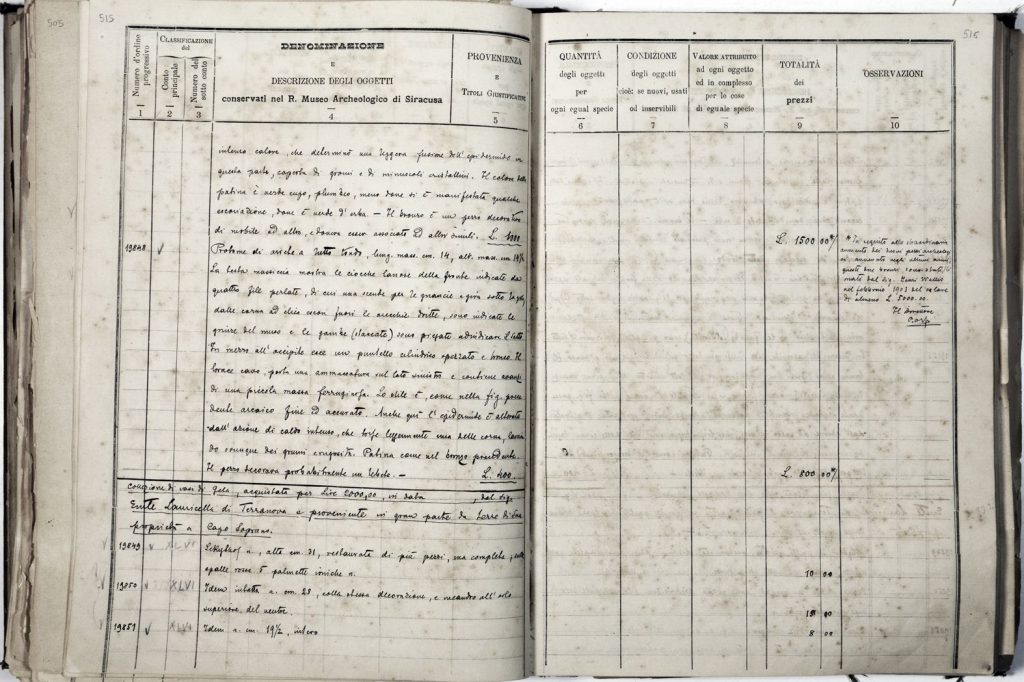 505
515
515
Numero d'ordine progressivo
CLASSIFICAZIONE
del
Conto principale
Numero del sotto conto
DENOMINAZIONE
E
DESCRIZIONE DEGLI OGGETTI
conservati nel R. Museo Archeologico di Siracusa
PROVENIENZA
E
TITOLI GIUSTIFICATIVI
1 2 3 4 5
intenso calore, che determinò una leggera fusione dell'epidermide in
questa parte, coperta di grumi e di minuscoli cristallini. Il colore della
patina è verde cupo, plumbeo, meno dove si è manifestata qualche
escoriazione, dove è verde d'erba. — Il bronzo è un pezzo decorativo
di mobile od altro, e doveva essere associato ad altri simili.
19848
Protome di ariete a tutto tondo, lung. mass. cm. 14, alt. mass. cm
La testa massiccia mostra le ciocche lanose della fronte indicate da
quattro file perlate, di cui una scende per le guancie e gira sotto la gola
dalle corna ad elice escon fuori le orecchie dritte, sono indicate le
del muso e le gambe (staccate) sono piegate
In mezzo all'occipite esce un puntello cilindrico spezzato
cavo, porta una ammaccatura sul lato sinistro e contiene avanzi
di una piccola massa ferruginosa. Lo stile è, come nella fig. prece
dente arcaico fine ed accurato. Anche qui l'epidermide è alterata
dall'azione di caldo intenso, che torse leggermente una delle corna,
do ovunque dei grumi Patina come nel bronzo precedente.
Il pezzo decorava probabilmente un lebete. — L. 400.
Collezione di vasi di Gela, acquistata per Lire 2000,00, in data , dal Sig.
Emilio Lauricella di Terranova e proveniente in gran parte da
proprietà a Capo Soprano.
19849 XLVI Lekythos a. alta cm. 31, restaurata di più pezzi, ma completa, sulle
spalle rosse 5 palmette ioniche n.
19850 XLVI Idem intatta a. cm. 23, colla stessa decorazione, e recando all'orlo
superiore del ventre.
19851 XLVI Idem a. cm. 19½, intero
QUANTITÀ
degli oggetti
per
ogni egual specie
CONDIZIONE
degli oggetti
cioè: se nuovi, usati
od inservibili
VALORE ATTRIBUITO
ad ogni oggetto
ed in complesso
per le cose
di eguale specie
TOTALITÀ
dei
prezzi
OSSERVAZIONI
6 7 8 9 10
L. 1500 00
* In seguito allo straordinario
aumento dei bronzi archeologi
ci, avvenuto negli ultimi anni,
questi due bronzi sono stati sti
mati dal Sig. Henri Wallis
nel febbraio 1903 del valore
di almeno L. 5000.00.
Il Direttore
Orsi
L. 800 00
10 00
15 00
8 00